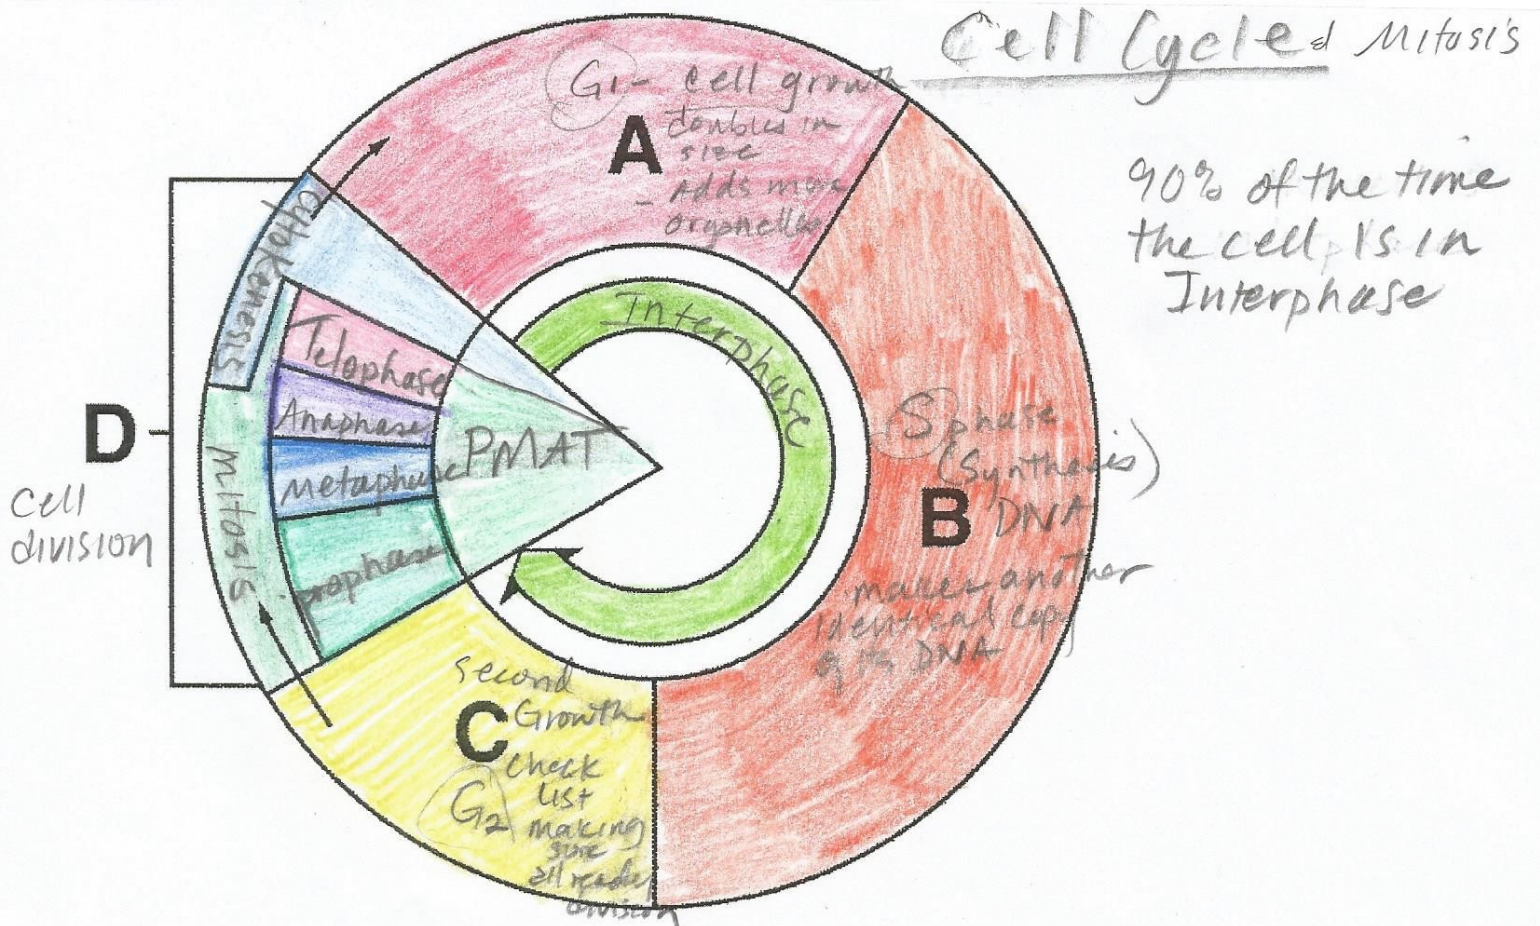 Cell Cycle & Mitosis
90% of the time
the cell is in
Interphase
G1 - cell growth
doubles in
size
- Adds more
organelles
A
Interphase
S phase
(Synthesis)
DNA
B
makes another
identical copy
of its DNA
second
Growth
C
check
list
G2
making
sure
all ready
division
D
cell
division
cytokenesis
mitosis
Telophase
Anaphase
Metaphase
prophase
PMAT